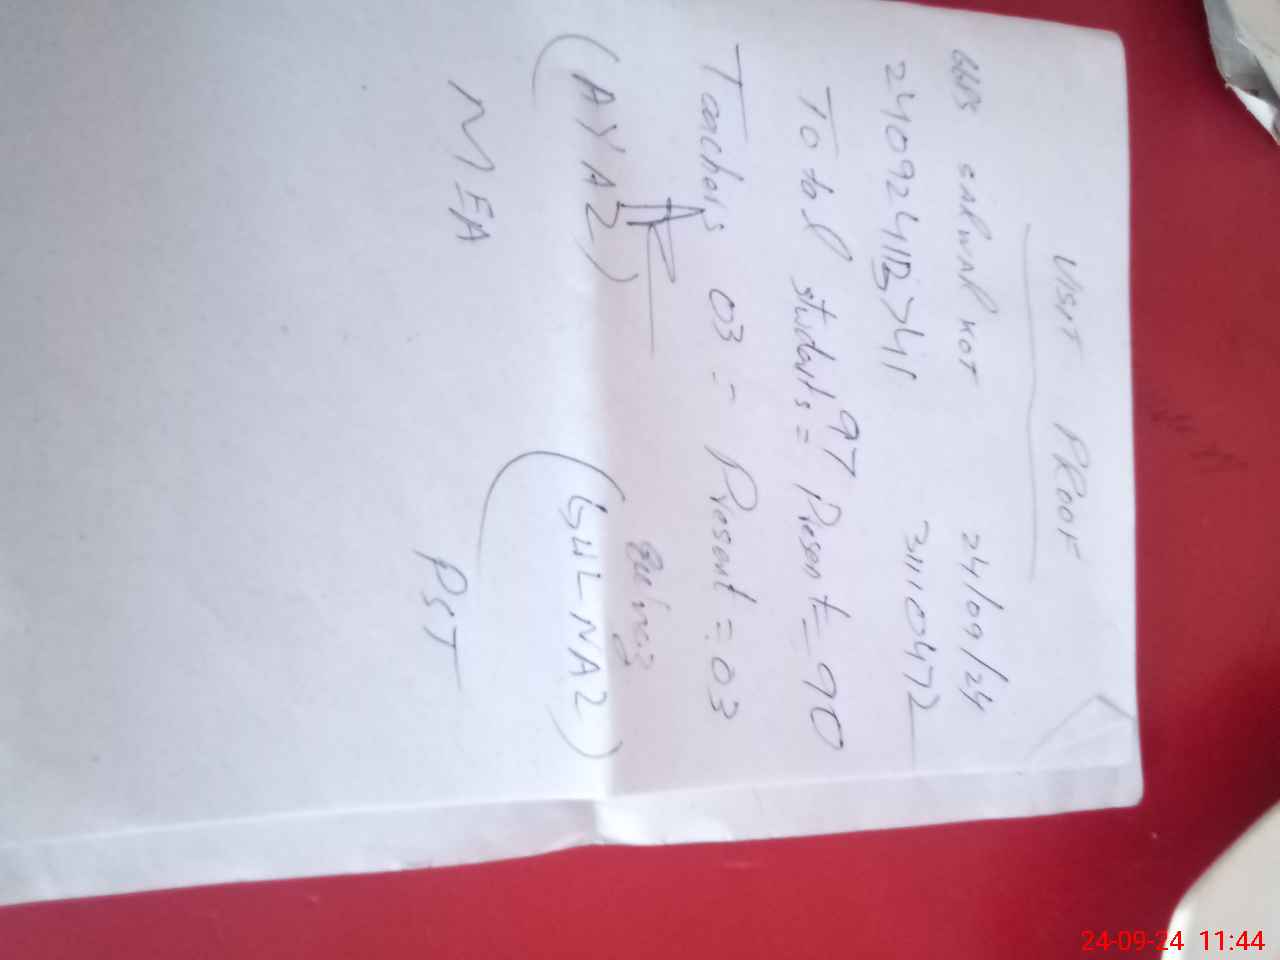 VISIT PROOF
GGPS SARWAR KOT 24/09/24
31110472
Total students = 97 Present = 90
Teachers 03 = Present = 03
Gulnaz
(AYAZ) (GULNAZ)
MEA PST
24-09-24 11:44